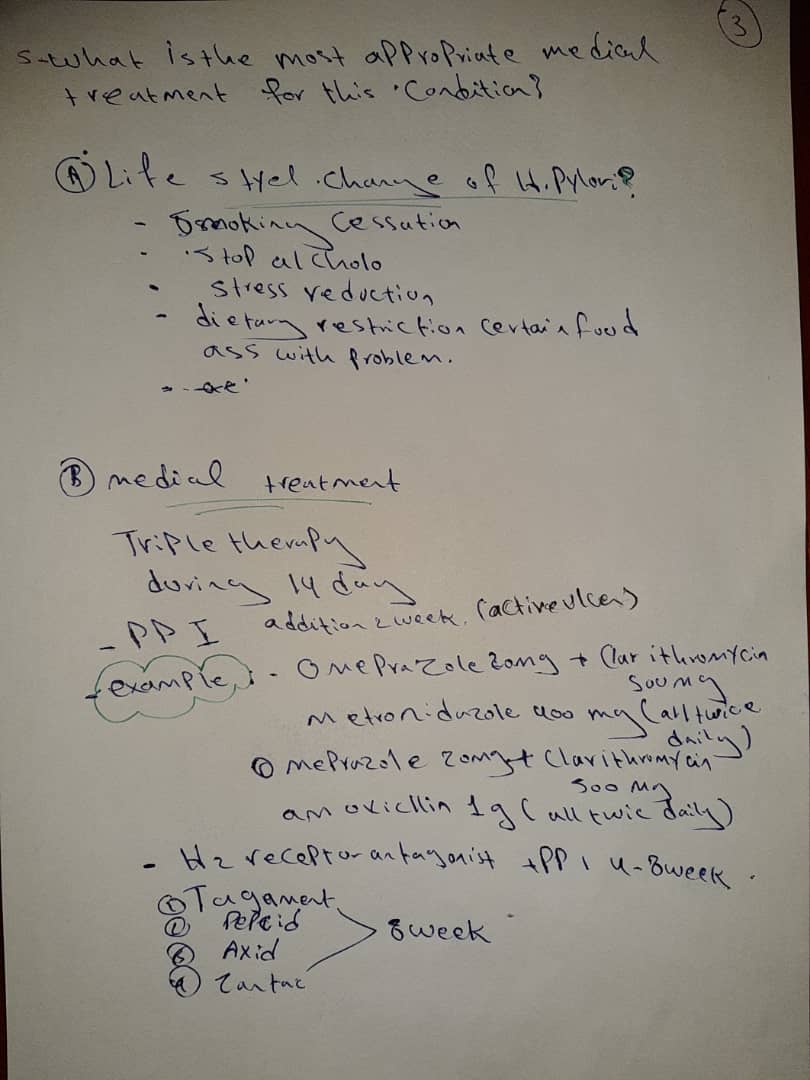 3
5-what is the most appropriate medical
treatment for this condition?
A Life styel change of H.Pylori?
- Smoking Cessation
- Stop alcholo
- stress reduction
- dietary restriction certain food
ass with problem.
B medical treatment
Triple therapy
during 14 day
- PPI addition 2 week. (active ulcer)
- example : - Omeprazole 20mg + Clarithromycin
500 mg
Metronidazole 400 mg (all twice
daily)
Omeprazole 20mg + Clarithromycin
500 mg
amoxicllin 1g (all twic daily)
- H2 receptor antagonist + PPI 4-8 week.
1 Tagament
2 Pepcid
3 Axid
8 week
4 Zantac